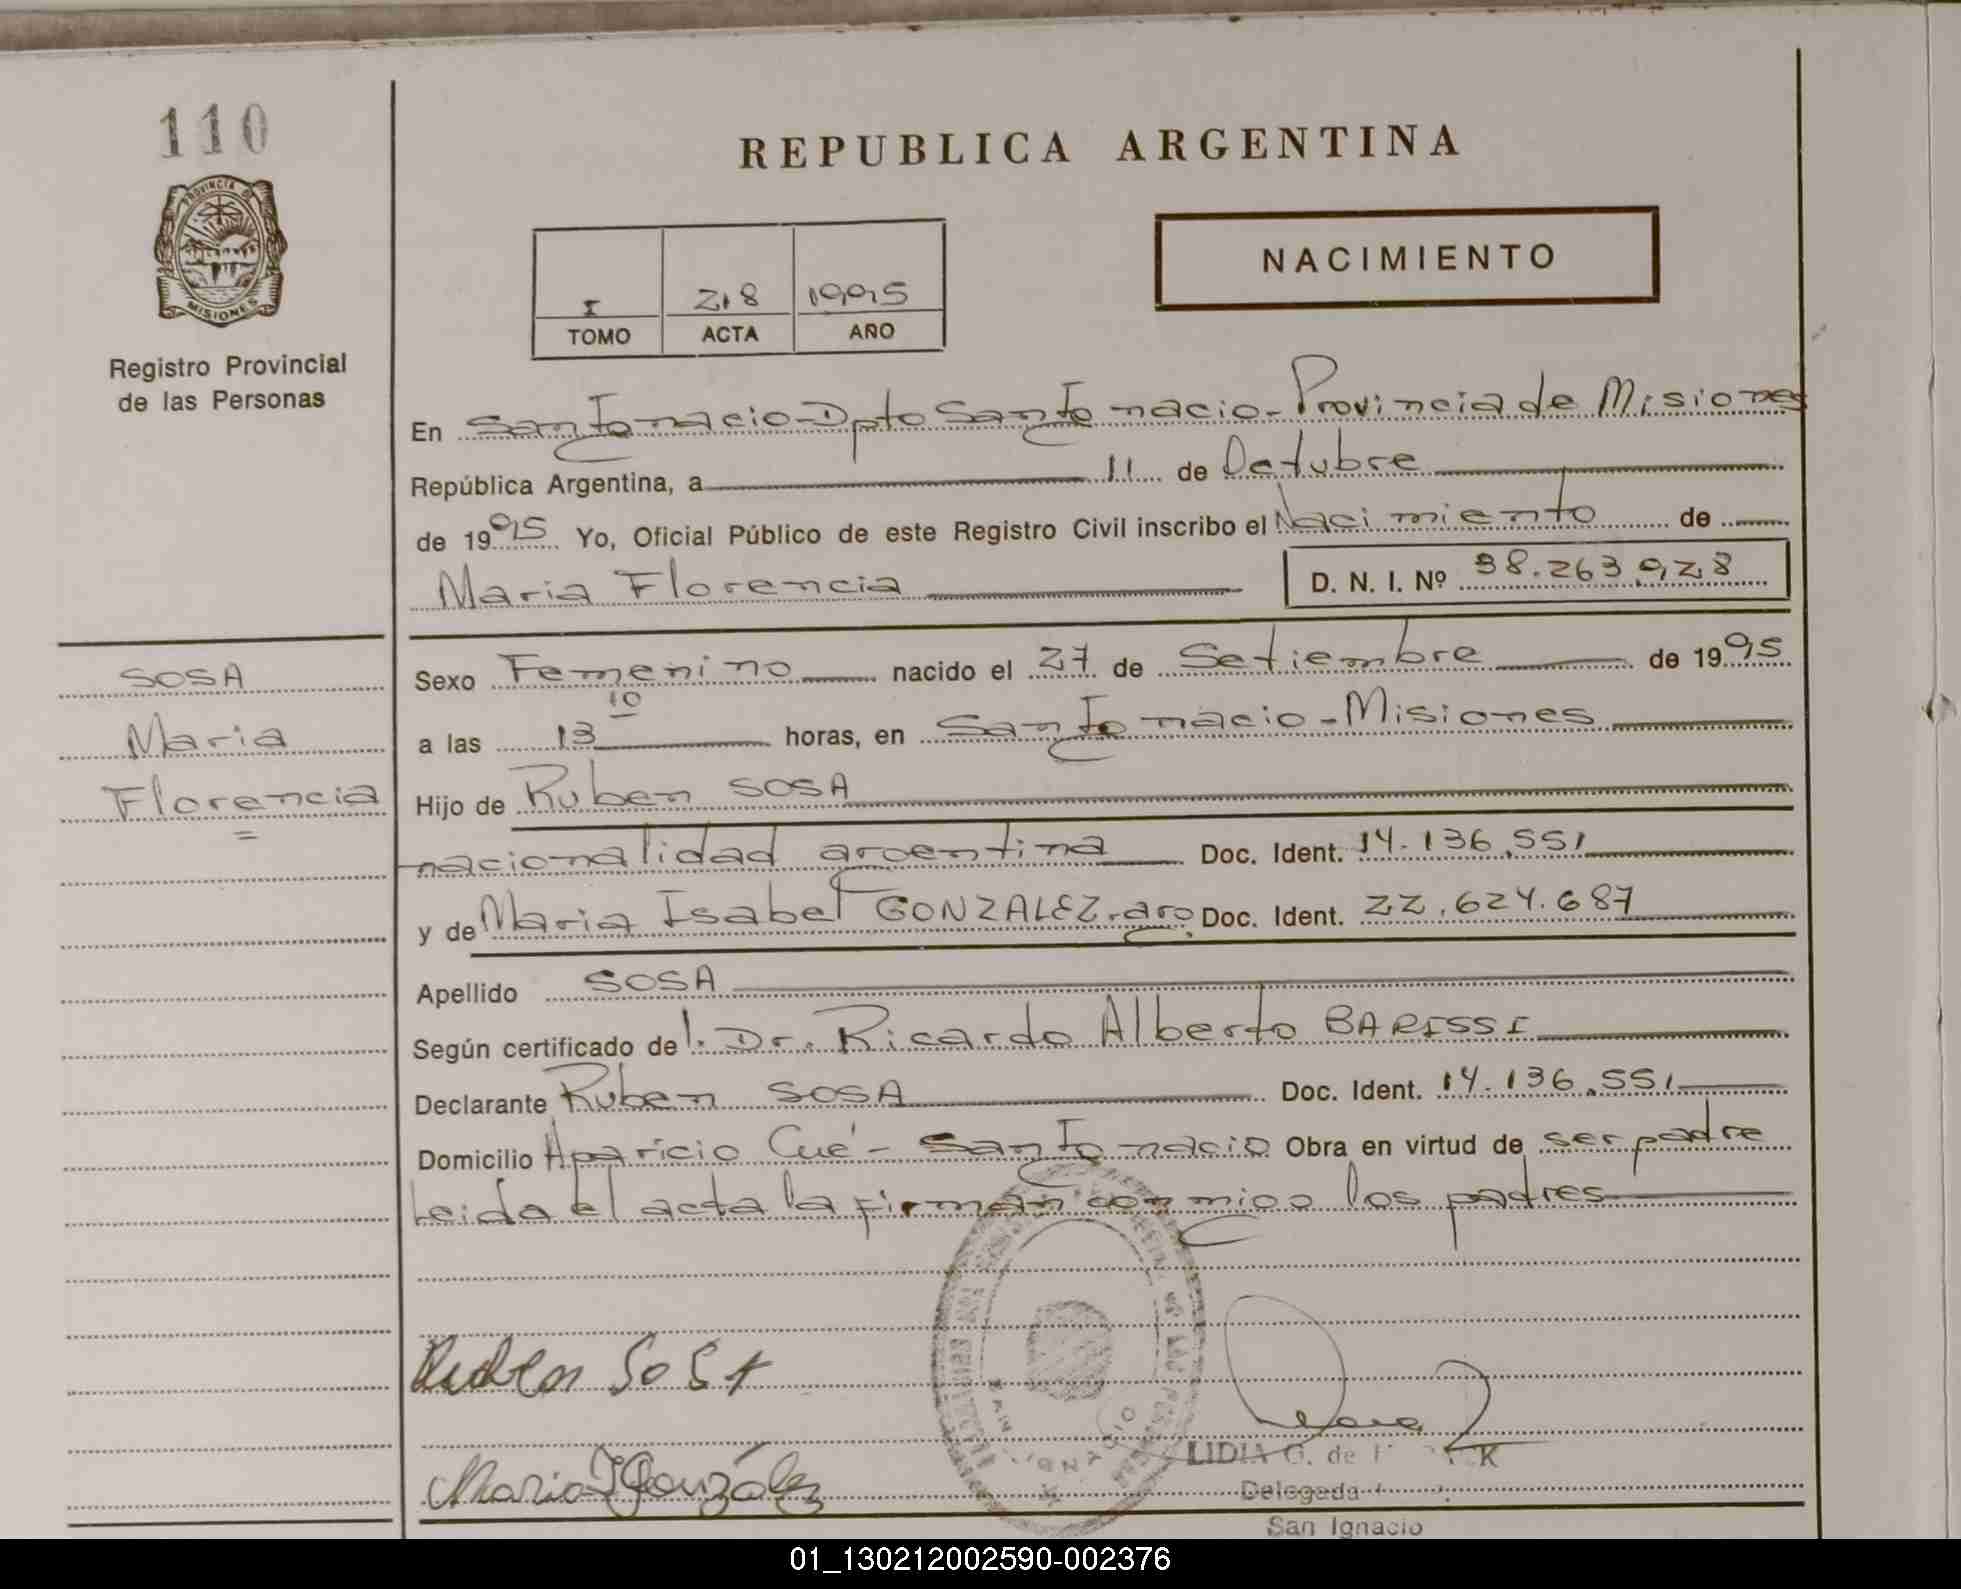 110
PROVINCIA DE
MISIONES
Registro Provincial
de las Personas
REPUBLICA ARGENTINA
I 218 1995
TOMO ACTA AÑO
NACIMIENTO
En San Ignacio - Dpto San Ignacio - Provincia de Misiones
República Argentina, a 11 de Octubre
de 1995 Yo, Oficial Público de este Registro Civil inscribo el Nacimiento de
Maria Florencia D. N. I. Nº 38.263.928
SOSA
Maria
Florencia
Sexo Femenino nacido el 27 de Setiembre de 1995
a las 13 10 horas, en San Ignacio - Misiones
Hijo de Ruben SOSA
nacionalidad argentina Doc. Ident. 14.136.551
y de Maria Isabel GONZALEZ. arg. Doc. Ident. 22.624.687
Apellido SOSA
Según certificado del. Dr. Ricardo Alberto BARISSI
Declarante Ruben SOSA Doc. Ident. 14.136.551
Domicilio Aparicio Cué - San Ignacio Obra en virtud de ser padre
Leida el acta la firman conmigo los padres
Ruben SoSA
Maria I Gonzáles
LIDIA G. de
Delegada
San Ignacio
01_130212002590-002376